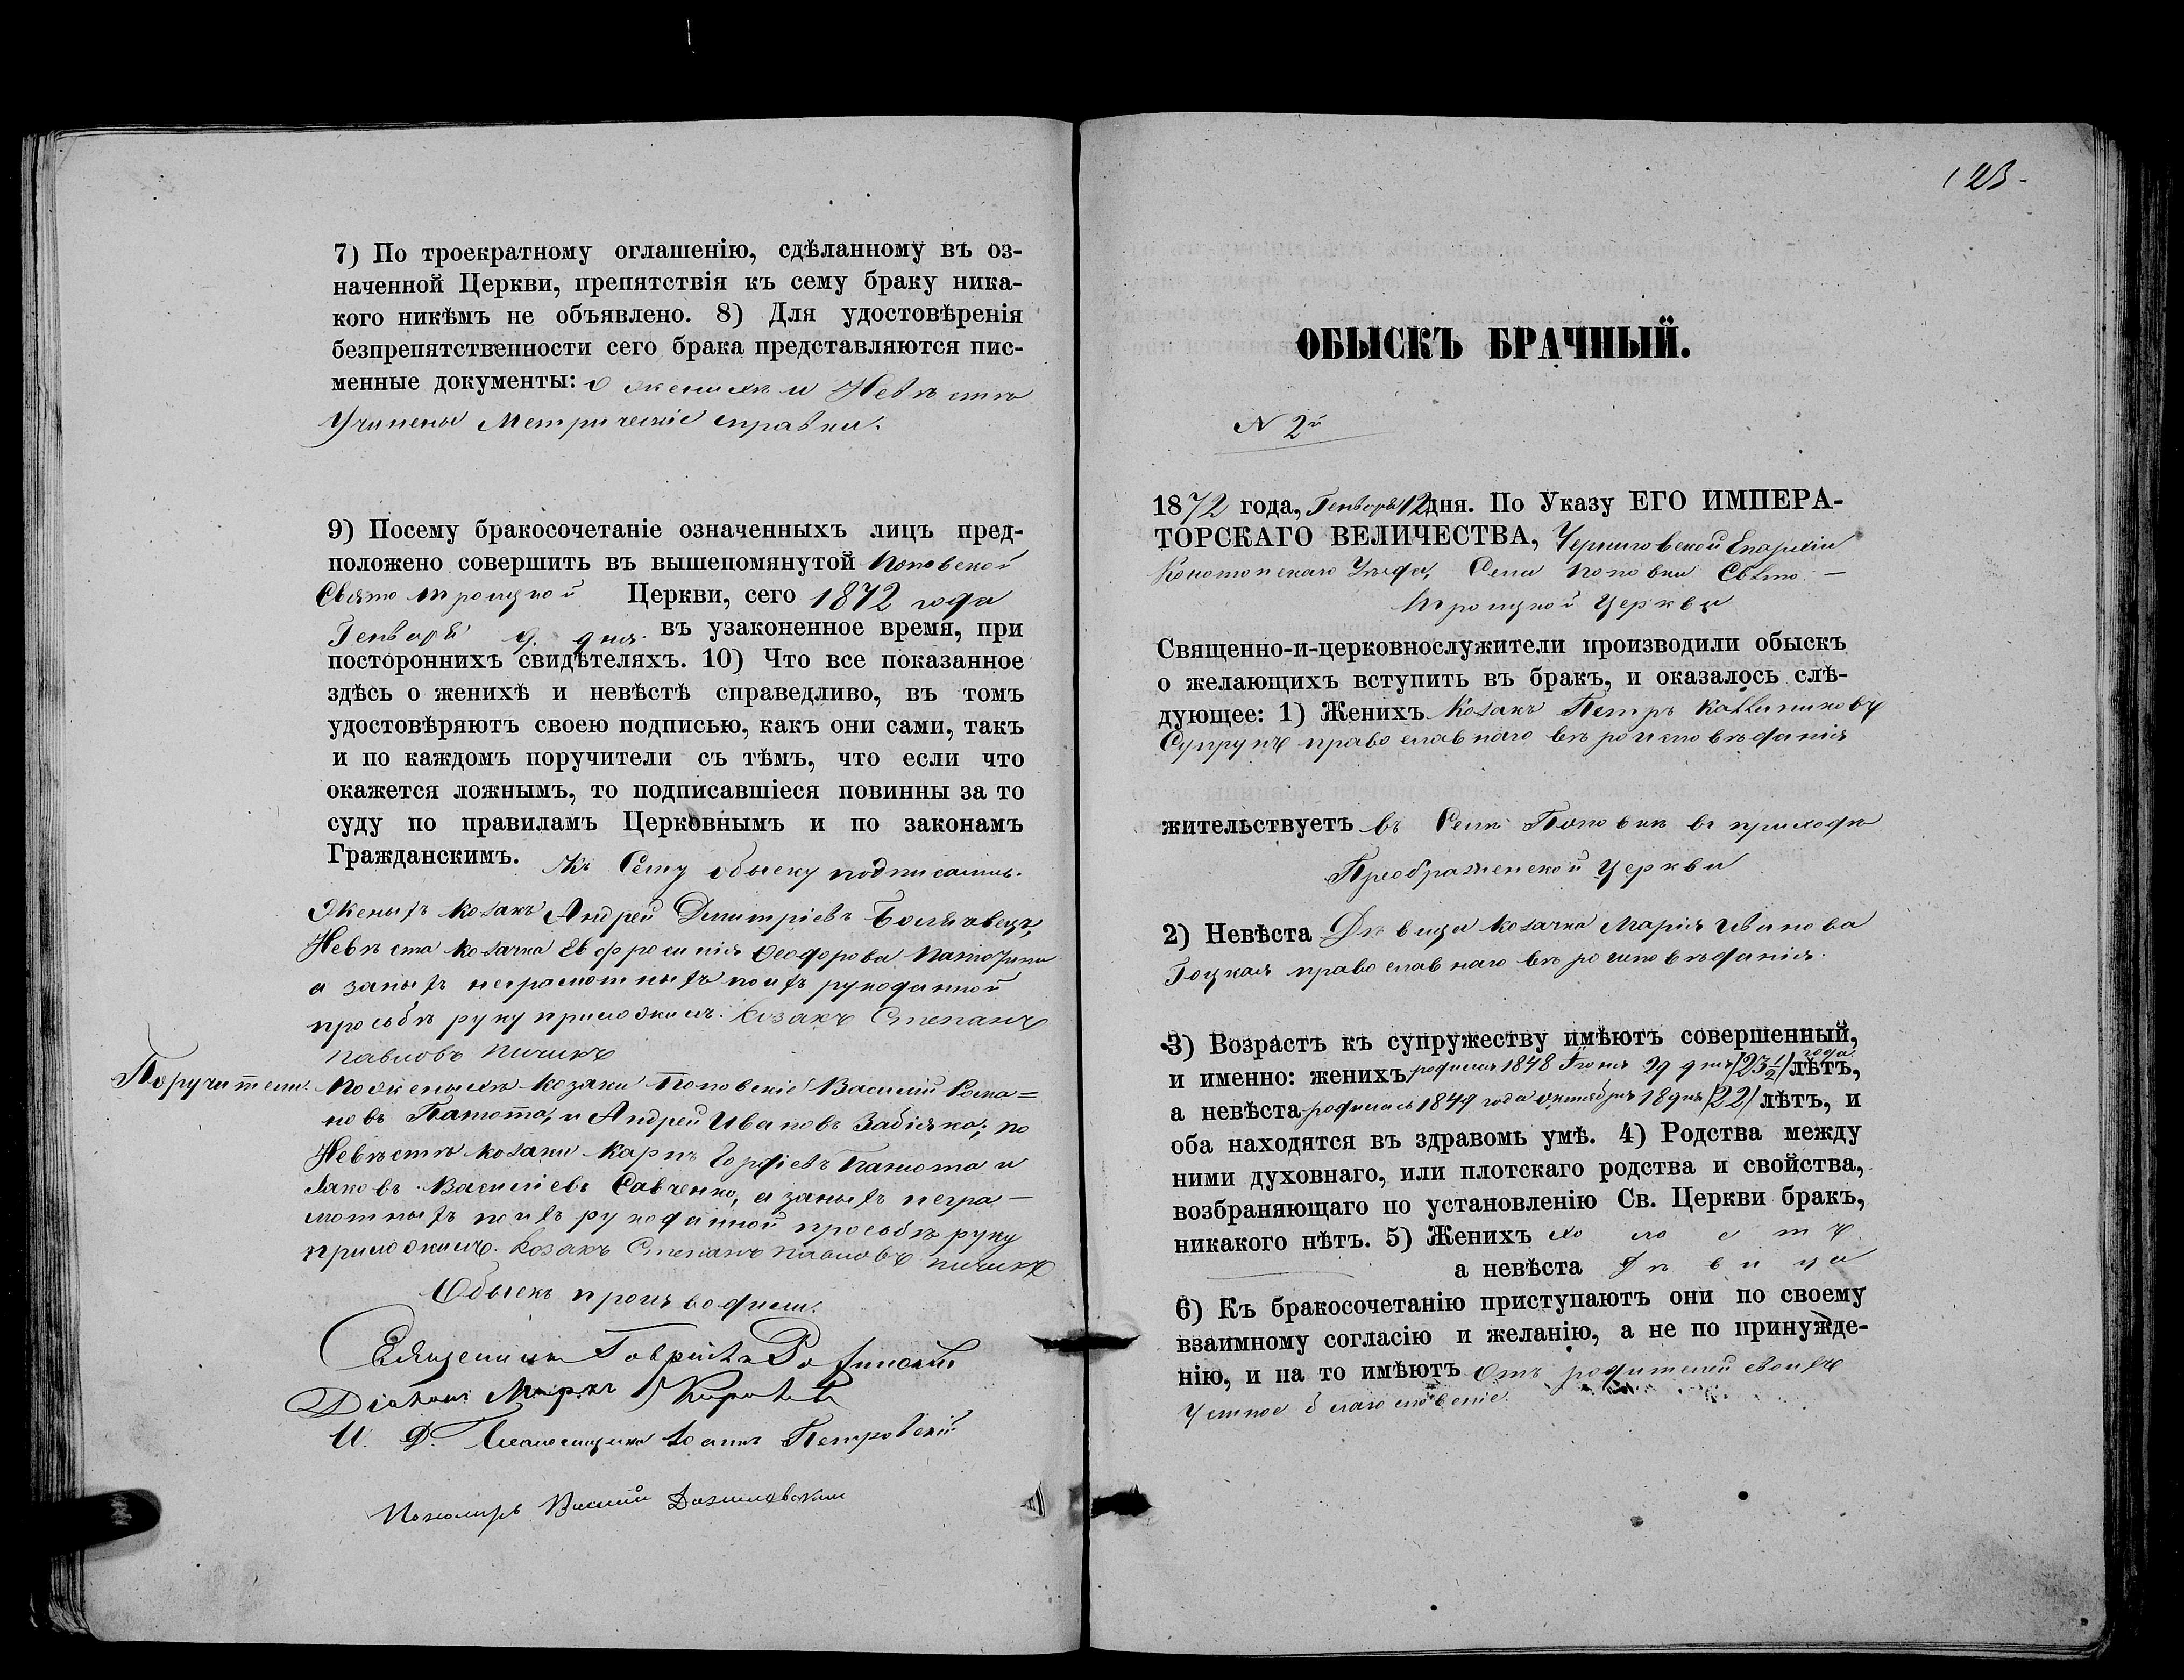 7) По троекратному оглашенію, сдѣланному въ оз-
наченной Церкви, препятствія къ сему браку ника-
кого никѣмъ не объявлено. 8) Для удостовѣренія
безпрепятственности сего брака представляются пис-
менные документы: о женихѣ и Невѣстѣ
Учинены Метрическіе справки.
9) Посему бракосочетаніе означенныхъ лицъ пред-
положено совершить въ вышепомянутой Поповской
Свято Троицкой Церкви, сего 1872 года
Генваря 9. дня. въ узаконенное время, при
постороннихъ свидѣтеляхъ. 10) Что все показанное
здѣсь о женихѣ и невѣстѣ справедливо, въ томъ
удостовѣряютъ своею подписью, какъ они сами, такъ
и по каждомъ поручители съ тѣмъ, что если что
окажется ложнымъ, то подписавшіеся повинны за то
суду по правиламъ Церковнымъ и по законамъ
Гражданскимъ. Къ Сему обыску подписались.
Женыхъ козакъ Андрей Димитріевъ
Невѣста козачка Евфросинія Феодорова
а заныхъ неграмотныхъ поихъ рукоданной
прозьбѣ руку приложилъ. Козакъ Степанъ
Павловъ Пичикъ
Поручители: По женыхѣ козаки Поповскіе Василій Рома=
новъ Панюта, и Андрей Ивановъ Забіяка; по
Невѣстѣ козаки Карпъ Гордіевъ Панюта и
Іаковъ Василіевъ Савченко, а заныхъ негра-
мотныхъ поихъ рукоданной прозьбѣ руку
приложилъ. Козакъ Степанъ Павловъ Пичикъ
Обыскъ производили:
Священникъ Гавріилъ
Діаконъ Маркъ
И. Д. Псаломщика Іоаннъ Петровскій
Пономарь Василій
123.
ОБЫСКЪ БРАЧНЫЙ.
N 2й
1872 года, Генваря 12 дня. По Указу ЕГО ИМПЕРА-
ТОРСКАГО ВЕЛИЧЕСТВА, Черниговской Епархіи
Конотопскаго Уѣзда, Села Поповки Свято-
Троицкой Церкви
Священно-и-церковнослужители производили обыскъ
о желающихъ вступить въ бракъ, и оказалось слѣ-
дующее: 1) Женихъ Козакъ Петръ Каллиниковъ
Супрунъ православнаго вѣроисповѣданія
жительствуетъ въ Селѣ Поповкѣ въ приходѣ
Преображенской Церкви
2) Невѣста Дѣвица козачка Марія Иванова
Гоцкая православнаго вѣроисповѣданія.
3) Возрастъ къ супружеству имѣютъ совершенный,
и именно: женихъ родился 1848 Іюня 29 дня /23½/ года лѣтъ,
а невѣста родилась 1849 года октября 18 дня /22/ лѣтъ, и
оба находятся въ здравомь умѣ. 4) Родства между
ними духовнаго, или плотскаго родства и свойства,
возбраняющаго по установленію Св. Церкви бракъ,
никакого нѣтъ. 5) Женихъ холостъ
а невѣста дѣвица
6) Къ бракосочетанію приступаютъ они по своему
взаимному согласію и желанію, а не по принужде-
нію, и на то имѣютъ Отъ родителей своихъ
Устное благословеніе.